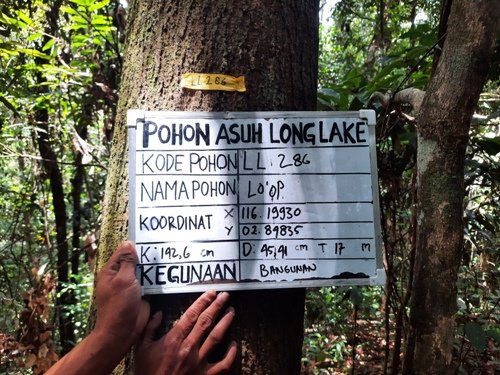 LL 286
POHON ASUH LONG LAKE
KODE POHON LL. 286
NAMA POHON LO'OP.
KOORDINAT X 116.19930
Y 02.89835
K: 142,6 cm D: 45,41 cm T 17 m
KEGUNAAN BANGUNAN